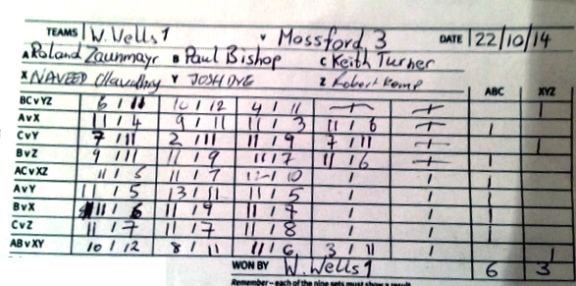 TEAMS W. Wells 1 v Mossford 3 DATE 22/10/14
A Roland Zaunmayr B Paul Bishop C Keith Turner
X NAVEED Chaudhry Y JOSH DYE Z Robert Kemp
ABC XYZ
BCvYZ 6 / 11 10 / 12 4 / 11 1
AvX 11 / 4 9 / 11 11 / 3 11 / 6 1
CvY 7 / 11 2 / 11 11 / 9 7 / 11 1
BvZ 9 / 11 11 / 9 11 / 7 11 / 6 1
ACvXZ 11 / 5 11 / 7 12 / 10 / / 1
AvY 11 / 5 13 / 11 11 / 5 / / 1
BvX 11 / 6 11 / 9 11 / 7 / / 1
CvZ 11 / 7 11 / 7 11 / 8 / / 1
ABvXY 10 / 12 8 / 11 11 / 6 3 / 11 / 1
WON BY W. Wells 1 6 3
Remember - each of the nine sets must show a result